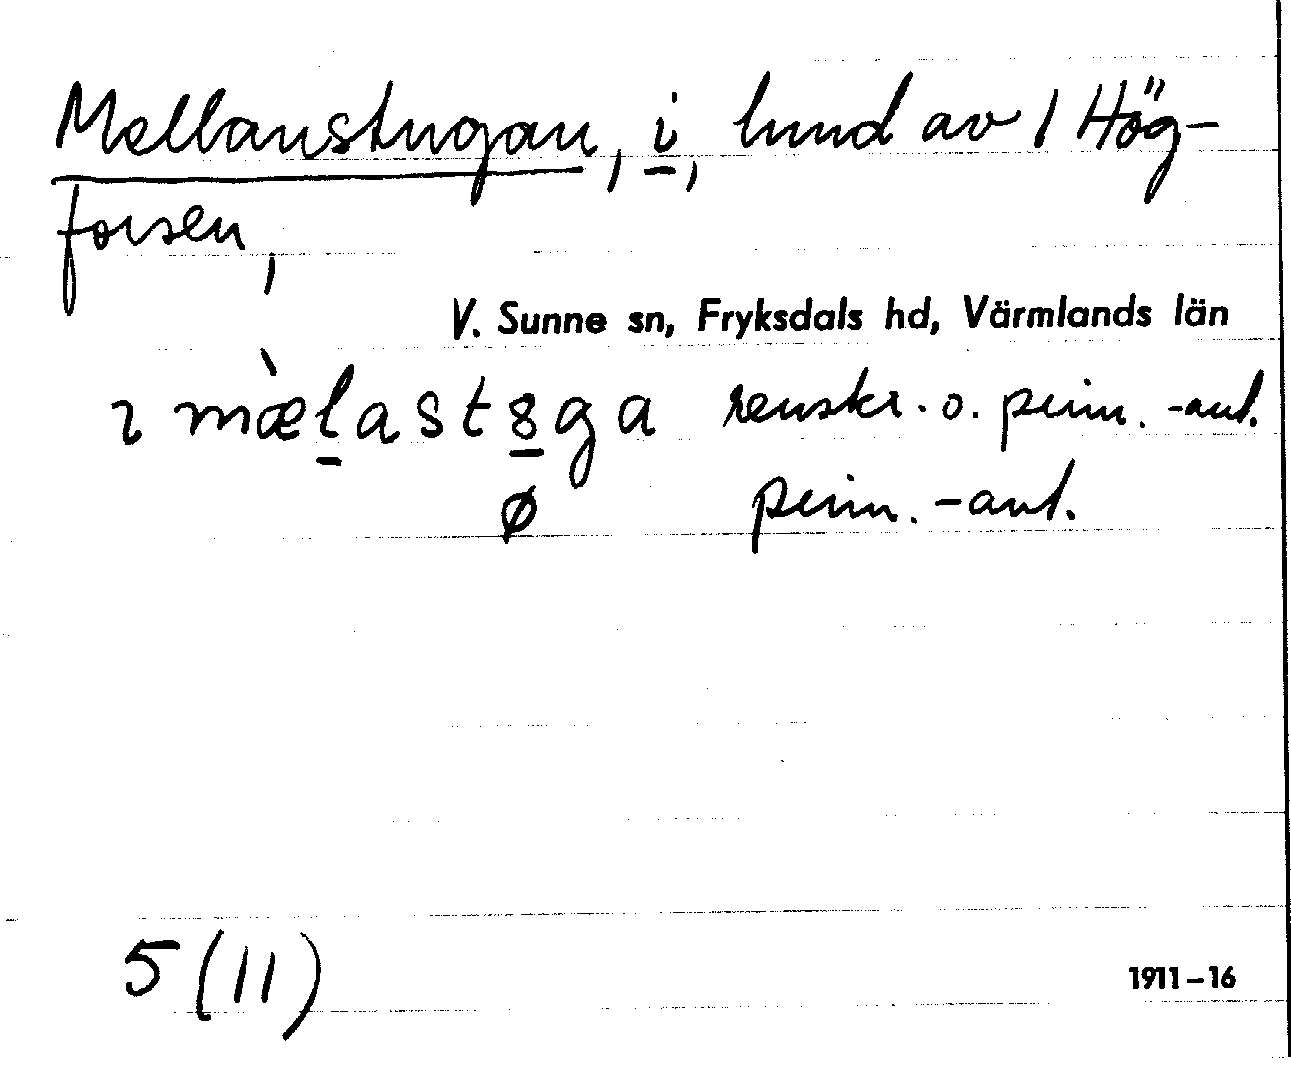 Mellanstugan, i, hmd av 1 Hög-
forsen,
V. Sunne sn, Fryksdals hd, Värmlands län
ɩ mæ̀last8ga renskr. o. prim.-ant.
ø prim.-ant.
5 (11)
1911-16